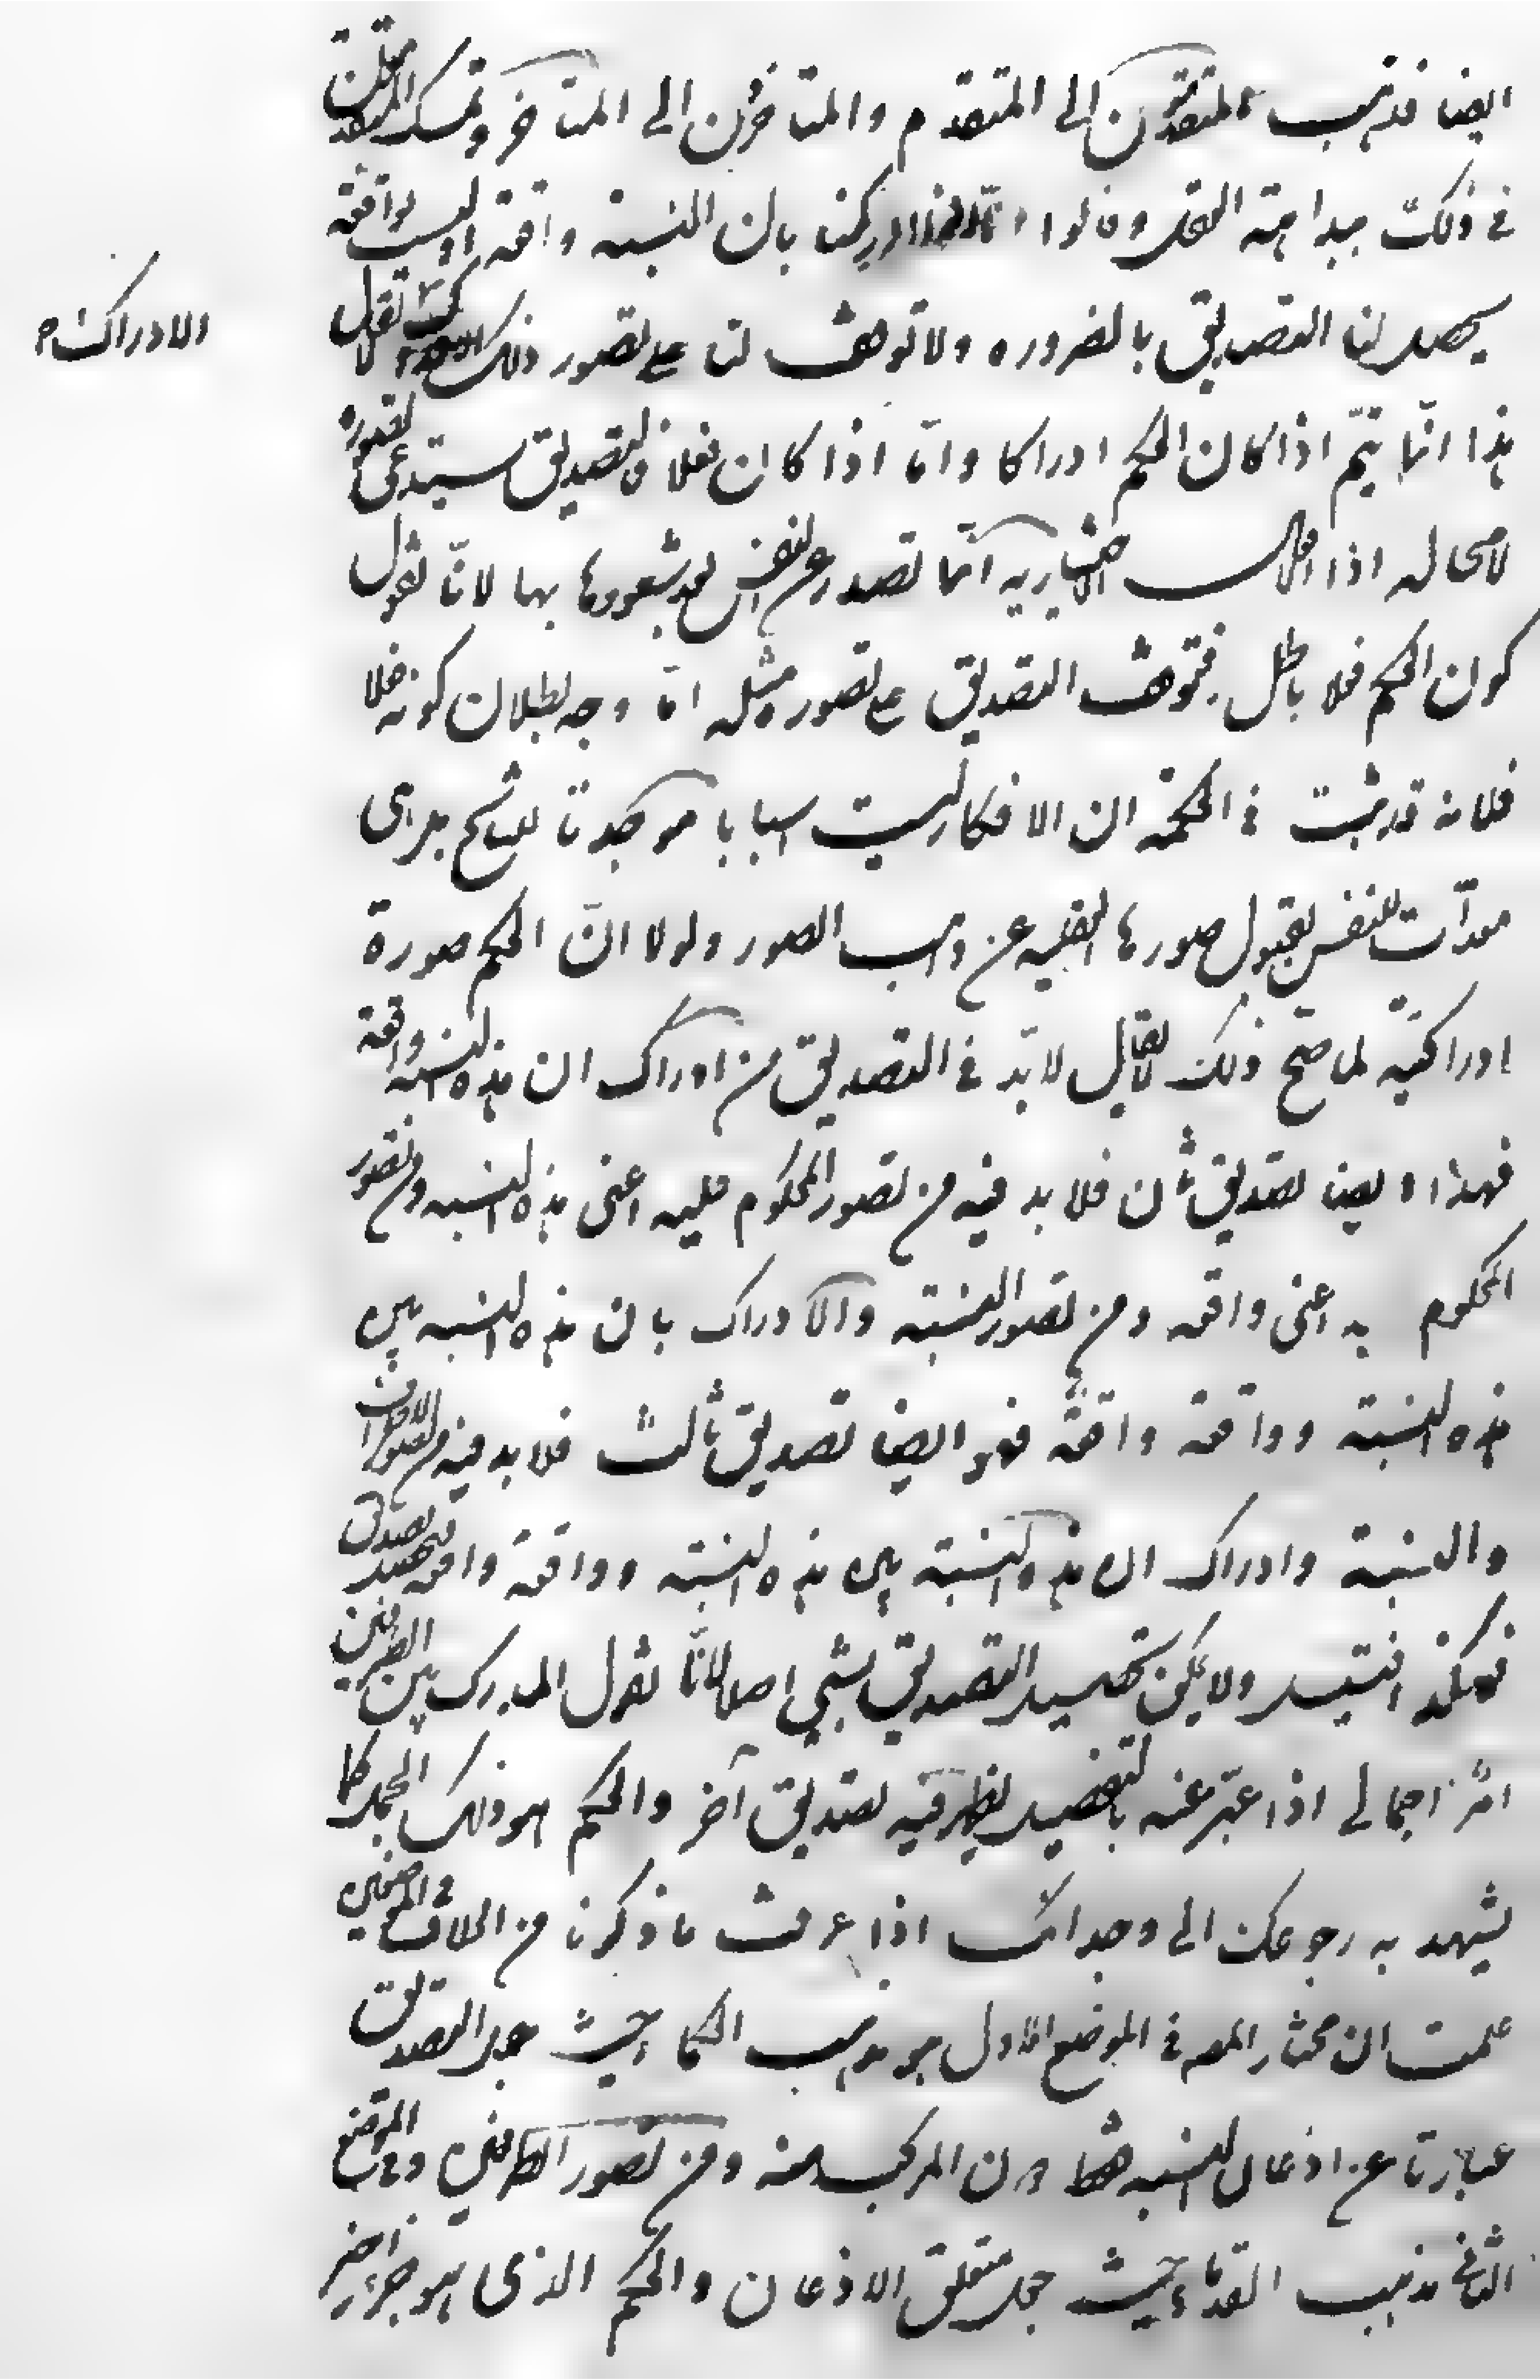 ايضا فذهب المتقدمون الى المتقدم والمتأخرون الى المتأخر وتمسك المتقدمون
في ذلك ببداهة العقل وقالوا اذا ادركنا بان النسبة واقعة او ليست بواقعة
يحصل لنا التصديق بالضرورة ولا توقف لنا على تصور ذلك الادراك لا يقال
هذا انما يتم اذا كان الحكم ادراكا واما اذا كان فعلا فالتصديق يستدعى تصوره
لا محاله اذ الافعال الاختياريه انما تصدر عن النفس بعد شعورها بها لانا نقول
كون الحكم فعلا باطل فتوقف التصديق على تصوره مثله اما وجه بطلان كونه فعلا
فلانه قد ثبت في الحكمة ان الافكار ليست اسبابا موجدتا للنتائج بل هى
معدات للنفس لقبول صورها العقليه عن واهب الصور ولولا ان الحكم صورة
ادراكية لما صح ذلك لا يقال لابد في التصديق من ادراك ان هذه النسبه واقعة
فهذا ايضا تصديق ثان فلا بد فيه من تصور المحكوم عليه اعنى هذه النسبه ومن تصور
المحكوم به اعنى واقعه ومن تصور النسبته والادراك بان هذه النسبه بين
هذه النسبته وواقعة واقعة فهو ايضا تصديق ثالث فلا بد فيه من تصورات الاطراف
والنسبة وادراك ان هذه النسبته بين هذه النسبته وواقعة واقعه
فهكذا فيتسلسل ولا يمكن تحصيل التصديق بشئ اصلا لانا نقول المدرك بين الطرفين
امر اجمالى اذا عبر عنه بالتفصيل يظهر فيه تصديق آخر والحكم هو ذلك المجمل كما
يشهد به رجوعك الى وجدانك اذا عرفت ما ذكرنا من الخلاف في الموضعين
علمت ان مختار المص في الموضع الاول هو مذهب الحكماء حيث جعل التصديق
عبارتا عن اذعان للنسبه فقط دون المركب منه ومن تصور الطرفين وفي الموضع
الثانى مذهب القدماء حيث جعل متعلق الاذعان والحكم الذى هو جزء اخير
الادراك م